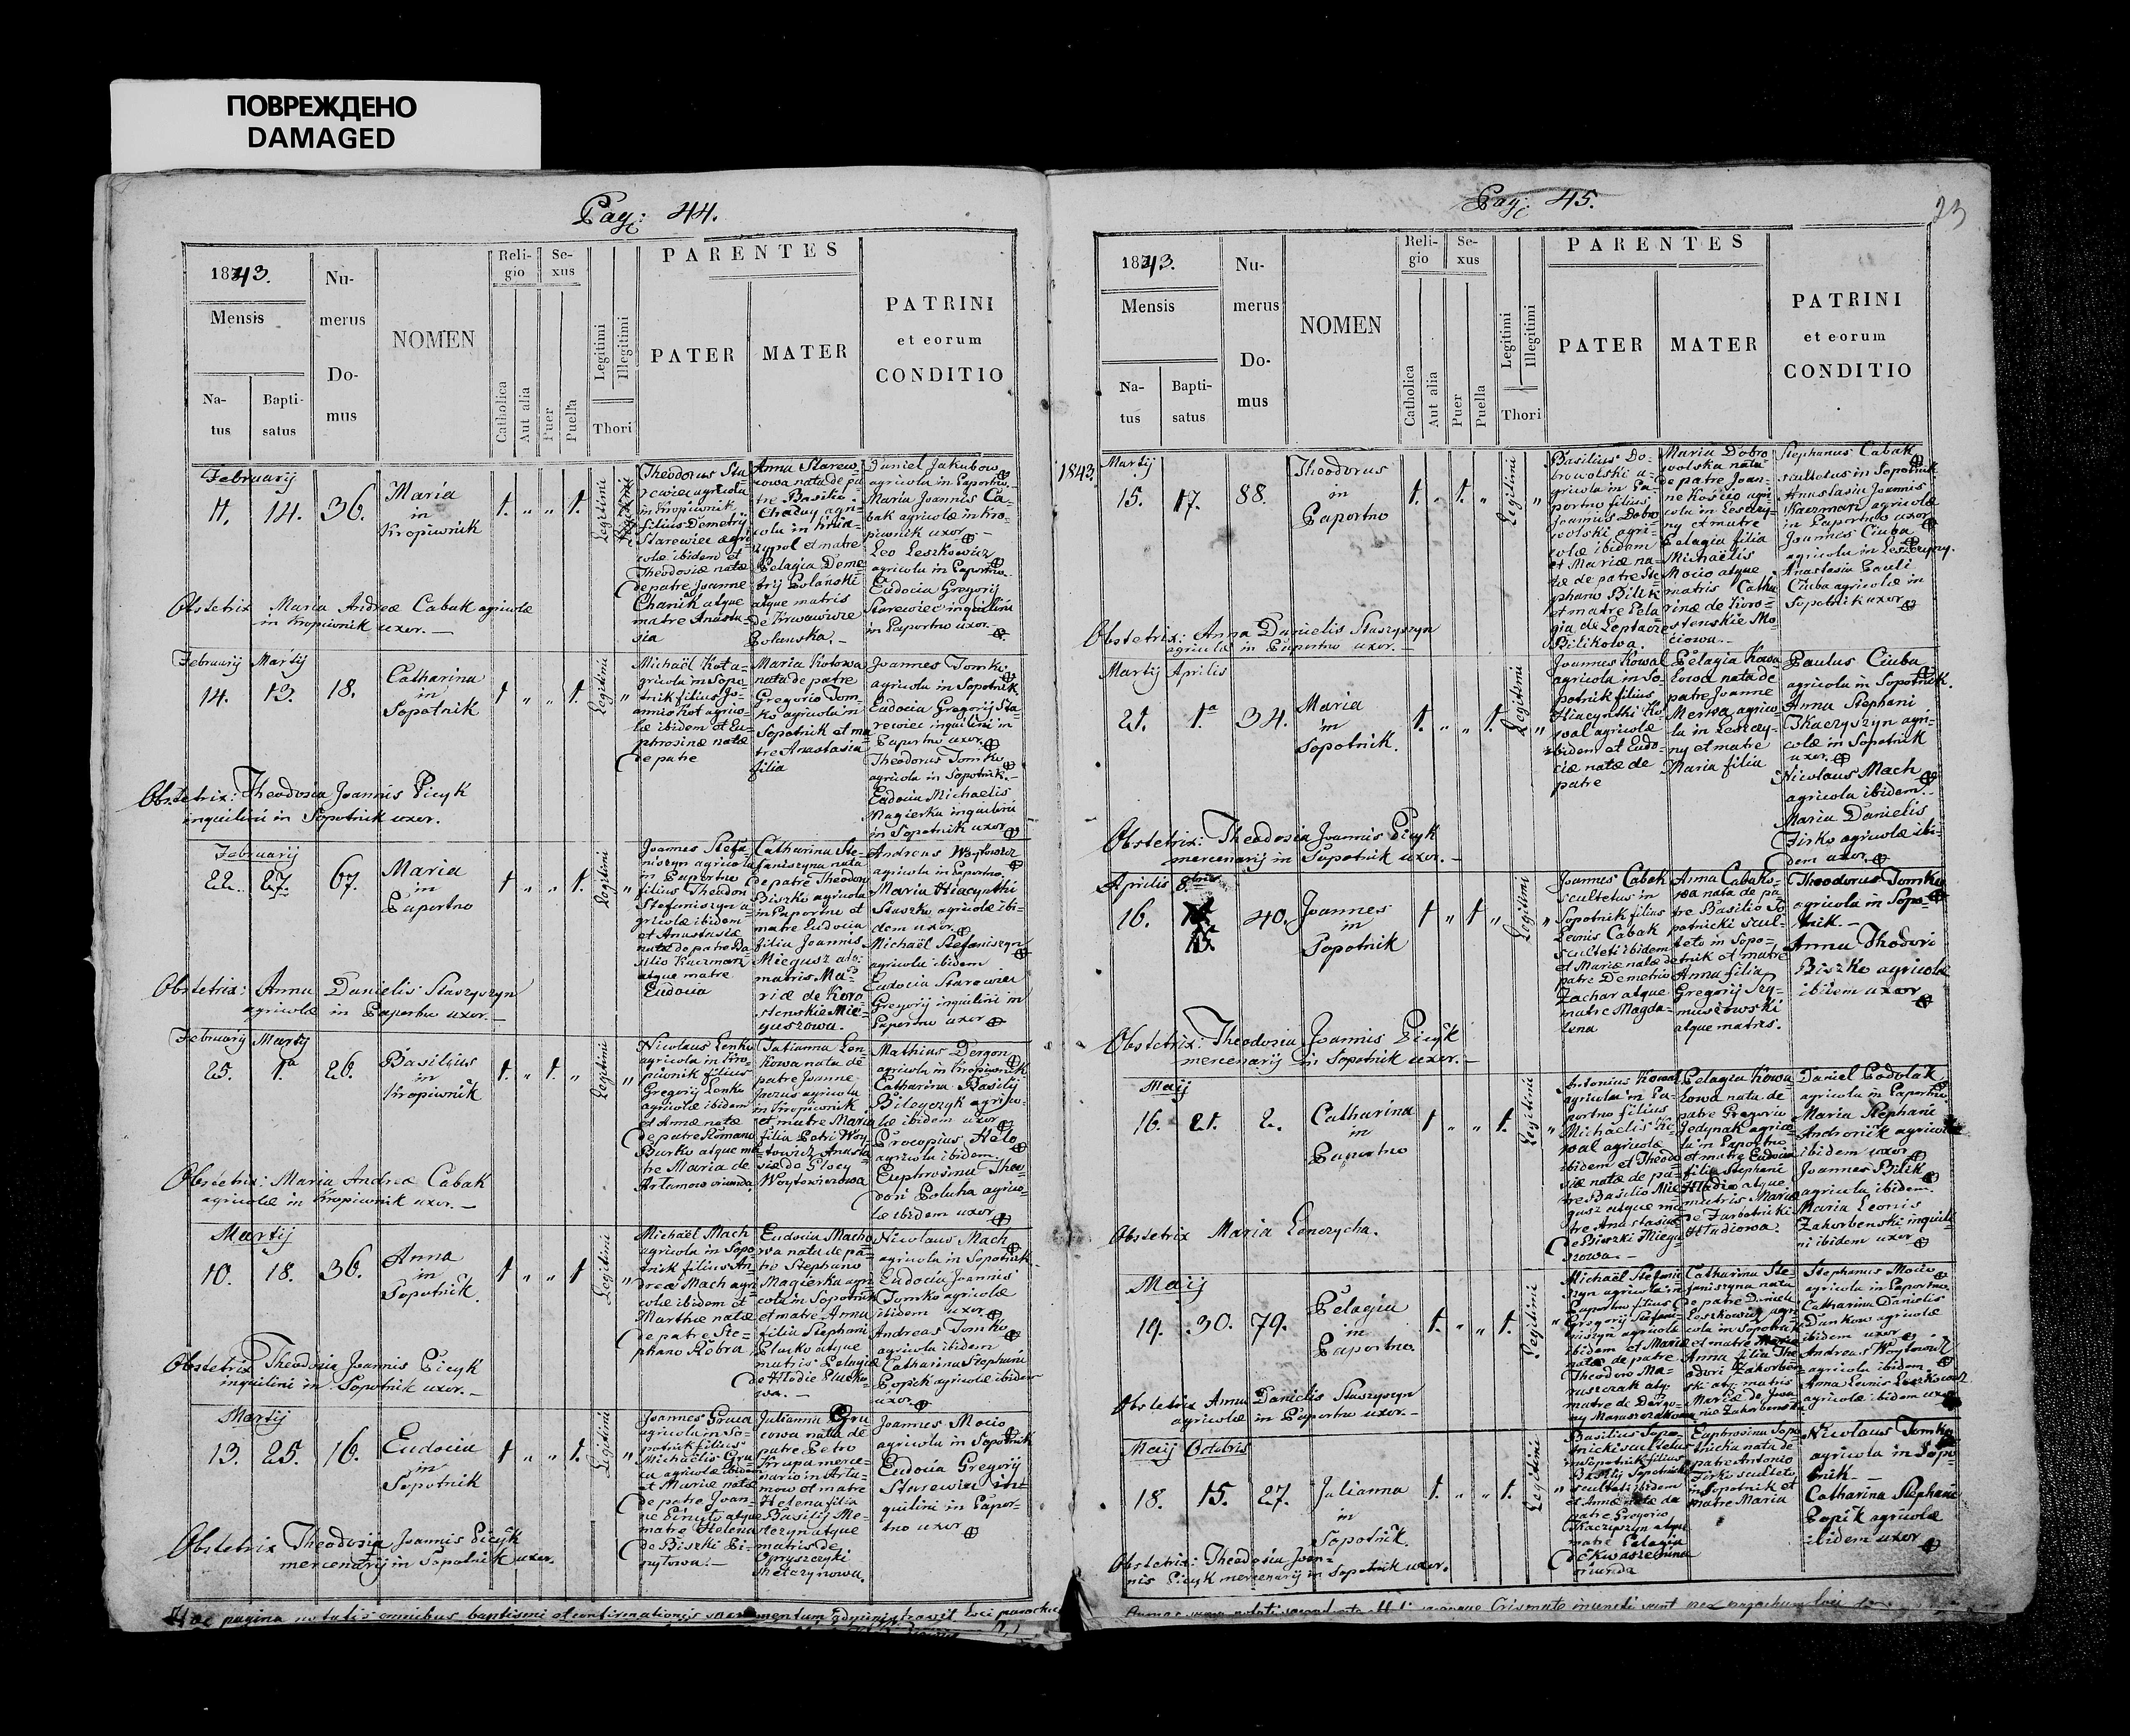 ПОВРЕЖДЕНО
DAMAGED
Pag: 44.
1843.
Mensis
Na-
tus
Bapti-
satus
Nu-
merus
Do-
mus
NOMEN
Reli-
gio
Catholica
Aut alia
Se-
xus
Puer
Puella
Legitimi
Illegitimi
Thori
PARENTES
PATER
MATER
PATRINI
et eorum
CONDITIO
Februarij
11. 14. 36.
Maria
in
Kropiwnik
1. „ „ 1.
Legitimi
Theodorus Sta-
rewiec agricola
in Kropiwnik
filius Demetrij
Starewiec agri-
colæ ibidem et
Theodosiæ natæ
de patre Joanne
Charik atque
matre Anasta-
sia
Anna Starew-
cowa nata de pa-
tre Basilio
agri-
cola in
et matre
Pelagia Deme-
trij Polanski
atque matris
de
Polanska.
Daniel Jakubow
agricola in Paportno
Maria Joannis Ca-
bak agricolæ in Kro-
piwnik uxor
Leo Leszkowicz
agricola in Paportno
Eudocia Gregorij
Starewiec inquilini
in Paportno uxor.
Obstetrix Maria Andreæ Cabak agricolæ
in Kropiwnik uxor.
Februarij Martij
14. 13. 18.
Catharina
in
Sopotnik
1 „ „ 1.
Legitimi „
Michaël Kot a-
gricola in Sopo-
tnik filius Jo-
annis Kot agrico-
læ ibidem et Eu-
phrosinæ natæ
de patre
Maria Kotowa
nata de patre
Gregorio Tom-
ko agricola in
Sopotnik et ma-
tre Anastasia
filia
Joannes Tomko
agricola in Sopotnik
Eudocia Gregorij Sta-
rewiec inquilini in
Paportno uxor.
Theodorus Tomko
agricola in Sopotnik.
Eudocia Michaelis
Magierka inquilini
in Sopotnik uxor
Obstetrix: Theodosia Joannis Picyk
inquilini in Sopotnik uxor.
Februarij
22. 27. 67.
Maria
in
Paportno
1 „ „ 1.
Legitimi „
Joannes Stefa-
niszyn agricola
in Paportno
filius Theodori
Stefaniszyn a-
gricolæ ibidem
et Anastasiæ
natæ de patre Ba-
silio Kaczmarz
atque matre
Eudocia
Catharina Ste-
faniszyna nata
de patre Theodoro
Biszko agricola
in Paportno et
matre Eudocia
filia Joannis
Miegusz atq:
matris Ma-
riæ de Koro-
stenskie Mie-
guszowa.
Andreas Woytowicz
agricola in Paportno.
Maria Hiacynthi
Staszko agricolæ ibi-
dem uxor
Michaël Stefaniszyn
agricola ibidem
Eudocia Starewiec
Gregorij inquilini in
Paportno uxor
Obstetrix: Anna Danielis Staszyszyn
agricolæ in Paportno uxor.
Februarij Martij
25. 1a 26.
Basilius
in
Kropiwnik
1. „ 1. „
Legitimi „
Nicolaus Lenko
agricola in Kro-
piwnik filius
Gregorij Lenko
agricolæ ibidem
et Annæ natæ
de patre Romano
Burko atque ma-
tre Maria de
Artamow oriunda.
Tatianna Len-
kowa nata de
patre Joanne
agricola
in Kropiwnik
et matre Maria
filia Petri Woy-
towicz Anasta-
siæ de
Woytowiczowa
Mathias Dergon
agricola in Kropiwnik
Catharina Basilij
Bileyczyk agrico-
læ ibidem uxor
Procopius
agricola ibidem.
Euphrosina Theo-
dori Poluha agrico-
læ ibidem uxor
Obstetrix: Maria Andreæ Cabak
agricolæ in Kropiwnik uxor.
Martij
10. 18. 36.
Anna
in
Sopotnik.
1 „ „ 1
Legitimi „
Michaël Mach
agricola in Sopo-
tnik filius An-
dreæ Mach agri-
colæ ibidem et
Marthæ natæ
de patre Ste-
phano Rebra
Eudocia Macho-
wa nata de pa-
tre Stephano
Magierka agri-
cola in Sopotnik
et matre Anna
filia Stephani
atque
matris Pelagiæ
de Hłodie
Nicolaus Mach
agricola in Sopotnik
Eudocia Joannis
Tomko agricolæ
ibidem uxor
Andreas Tomko
agricola ibidem
Catharina Stephani
Popik agricolæ ibidem
uxor.
Obstetrix Theodosia Joannis Picyk
inquilini in Sopotnik uxor.
Martij
13. 25. 16.
Eudocia
in
Sopotnik
1 „ „ 1.
Legitimi „
Joannes Gruca
agricola in So-
potnik filius
Michaëlis Gru-
ca agricolæ ibidem
et Mariæ natæ
de patre Joan-
ne atque
matre Helena
de Biszki
Julianna Gru-
cowa nata de
patre Petro
Krupa merce-
nario in Arta-
mow et matre
Helena filia
Basilij Me-
atque
matris de
Opryszczyki
Joannes Mocio
agricola in Sopotnik
Eudocia Gregorij
Starewiec in-
quilini in Papor-
tno uxor
Obstetrix Theodosia Joannis Picyk
mercenarij in Sopotnik uxor.
Hac pagina natalis omnibus baptismi et confirmationis sacramentum administravit loci parochus
Pag: 45.
23
1843.
Mensis
Na-
tus
Bapti-
satus
Nu-
merus
Do-
mus
NOMEN
Reli-
gio
Catholica
Aut alia
Se-
xus
Puer
Puella
Legitimi
Illegitimi
Thori
PARENTES
PATER
MATER
PATRINI
et eorum
CONDITIO
1843
Martij
15. 17. 88.
Theodorus
in
Paportno
1. „ 1. „
Legitimi „
Basilius Do-
browolski a-
gricola in Pa-
portno filius
Joannis Dobro-
wolski agri-
colæ ibidem
et Mariæ na-
tæ de patre Ste-
phano Bilik
et matre Pela-
gia de
Bilikowa.
Maria Dobro-
wolska nata
de patre Joan-
ne Koscio agri-
cola in Leszczy-
ny et matre
Pelagia filia
Michaëlis
Mocio atque
matris Catha-
rinæ de Koro-
stenskie Mo-
ciowa.
Stephanus Cabak
scultetus in Sopotnik
Anastasia Joannis
Kaczmarz agricolæ
in Paportno uxor
Joannes Ciuba
agricola in Leszczyny.
Anastasia Pauli
Ciuba agricolæ in
Sopotnik uxor
Obstetrix: Anna Danielis Staszyszyn
agricolæ in Paportno uxor.
Martij Aprilis
21. 1a 34.
Maria
in
Sopotnik.
1. „ „ 1.
Legitimi „
Joannes Kowal
agricola in So-
potnik filius
Hiacynthi Ko-
wal agricolæ
ibidem et Eudo-
ciæ natæ de
patre
Pelagia Kowa-
lowa nata de
patre Joanne
Merwa agrico-
la in Leszczy-
ny et matre
Maria filia
Paulus Ciuba
agricola in Sopotnik.
Anna Stephani
Tkaczyszyn agri-
colæ in Sopotnik
uxor.
Nicolaus Mach
agricola ibidem.
Maria Danielis
Firko agricolæ ibi-
dem uxor
Obstetrix: Theodosia Joannis Picyk
mercenarij in Sopotnik uxor.
Aprilis 8bris
16. 15. 40.
Joannes
in
Sopotnik
1 „ 1 „
Legitimi „
Joannes Cabak
scultetus in
Sopotnik filius
Leonis Cabak
sculteti ibidem
et Mariæ natæ de
patre Demetrio
Zachar atque
matre Magda-
lena
Anna Cabako-
wa nata de pa-
tre Basilio So-
potnicki scul-
teto in Sopo-
tnik et matre
Anna filia
Gregorij Szy-
atque matris.
Theodorus Tomko
agricola in Sopo-
tnik.
Anna Thodori
Biszko agricolæ
ibidem uxor
Obstetrix: Theodosia Joannis Picyk
mercenarij in Sopotnik uxor.
Maij
16. 21. 2.
Catharina
in
Paportno
1 „ „ 1.
Legitimi „
Antonius Kowal
agricola in Pa-
portno filius
Michaëlis Ko-
wal agricolæ
ibidem et Theodo-
siæ natæ de pa-
tre Basilio Mie-
gusz atque ma-
tre Anastasia
de Biszki Miegu-
szowa.
Pelagia Kowa-
lowa nata de
patre Gregorio
Jedynak agrico-
la in Paportno
et matre Eudocia
filia Stephani
atque
matris Mariæ
de
Daniel Podolak
agricola in Paportno
Maria Stephani
Andronik agricolæ
ibidem uxor
Joannes Bilik
agricola ibidem.
Maria Leonis
Zahorbenski inquili-
ni ibidem uxor
Obstetrix Maria Lenczycha.
Maij
19. 30. 79.
Pelagia
in
Paportno
1. „ „ 1.
Legitimi „
Michaël Stefani-
szyn agricola in
Paportno filius
Gregorij Stefani-
niszyn agricolæ
ibidem et Mariæ
natæ de patre
Theodoro Ma-
ruszczak atq:
matre de
Catharina Ste-
faniszyna nata
de patre Daniele
Leszkowicz agri-
cola in Sopotnik
et matre
Anna filia The-
odori Zahorben-
ski atq: matris
Mariæ de
Stephanus Mocio
agricola in Paportno
Catharina Danielis
Dankow agricolæ
ibidem uxor
Andreas Woytowicz
agricola ibidem.
Anna Leonis Leszkowicz
agricolæ ibidem uxor
Obstetrix Anna Danielis Staszyszyn
agricolæ in Paportno uxor.
Maij Octobris
18. 15. 27.
Julianna
in
Sopotnik.
1. „ „ 1.
Legitimi „
Basilius Sopo-
tnicki scultetus
in Sopotnik filius
Basilij Sopotnicki
sculteti ibidem
et Annæ natæ de
patre Gregorio
Tkaczyszyn atque
matre Pelagia
de Kwaszenina
oriunda
Euphrosina Sopo-
tnicka nata de
patre Antonio
Firko sculteto
in Sopotnik et
matre Maria
Nicolaus Tomko
agricola in Sopo-
tnik.
Catharina Stephani
Popik agricolæ
ibidem uxor
Obstetrix: Theodosia Joan-
nis Picyk mercenarij in Sopotnik uxor.